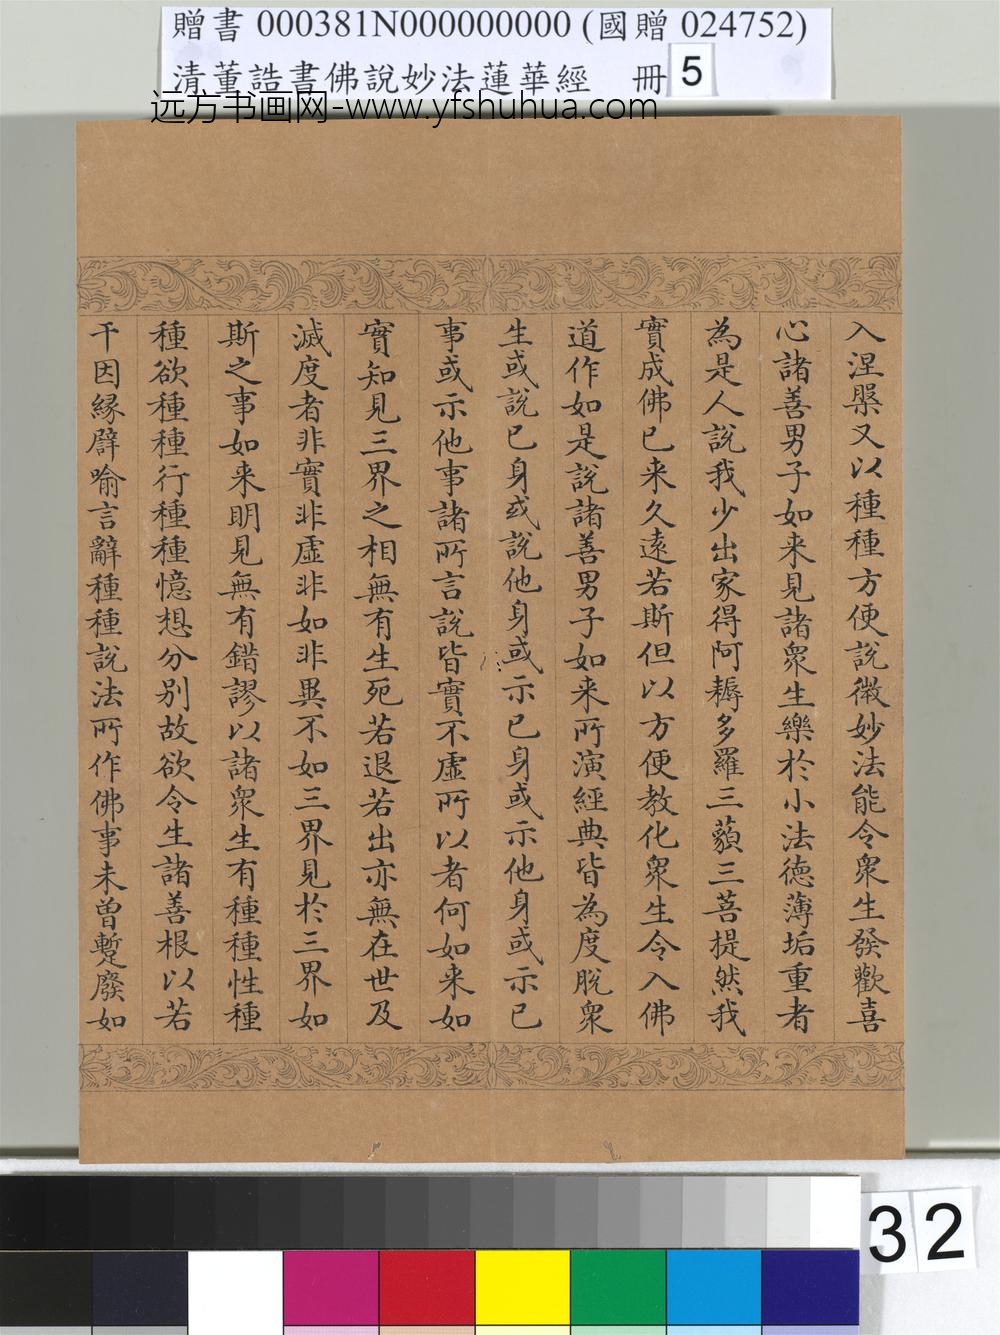 贈書 000381N000000000 (國贈 024752)
清董誥書佛說妙法蓮華經 冊 5
远方书画网-www.yfshuhua.com
入涅槃又以種種方便說微妙法能令眾生發歡喜
心諸善男子如来見諸眾生樂於小法德薄垢重者
為是人說我少出家得阿耨多羅三藐三菩提然我
實成佛已来久遠若斯但以方便教化眾生令入佛
道作如是說諸善男子如来所演經典皆為度脫眾
生或說已身或說他身或示已身或示他身或示已
事或示他事諸所言說皆實不虛所以者何如来如
實知見三界之相無有生死若退若出亦無在世及
滅度者非實非虛非如非異不如三界見於三界如
斯之事如来明見無有錯謬以諸眾生有種種性種
種欲種種行種種憶想分別故欲令生諸善根以若
干因緣譬喻言辭種種說法所作佛事未曾蹔廢如
32